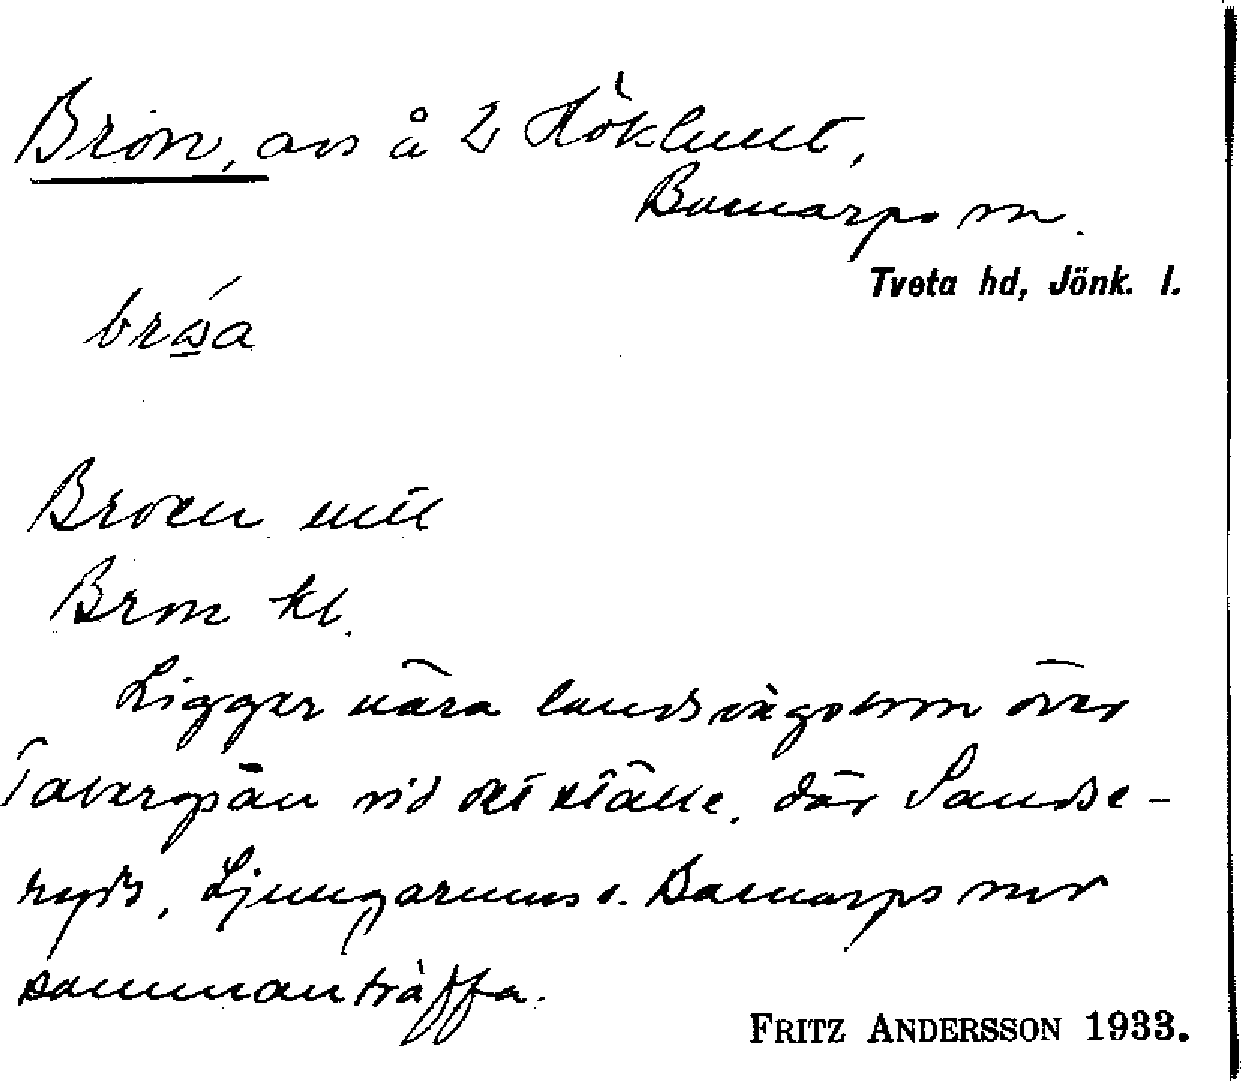 Bron, avs å 2 Höklunt,
Barnarps sn.
Tveta hd, Jönk. l.
Broen
Bron kl.
Ligger nära landsvägsbron över
Tabergsån vid det ställe, där Sandse-
ryds, Ljungarums o. Barnarps snr
sammanträffa.
FRITZ ANDERSSON 1933.